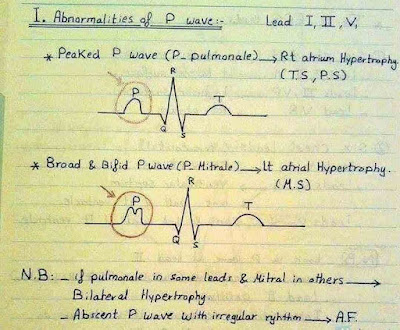 I. Abnormalities of P wave:- Lead I, II, V1
* Peaked P wave (P_ pulmonale) → Rt atrium Hypertrophy.
(T.S, P.S)
R
P
T
Q
S
* Broad & Bifid P wave (P_ Mitrale) → Lt atrial Hypertrophy.
(M.S)
R
P
T
Q
S
N.B: _ if pulmonale in some leads & Mitral in others →
Bilateral Hypertrophy.
_ Abscent P wave with irregular ryhthm → A.F.